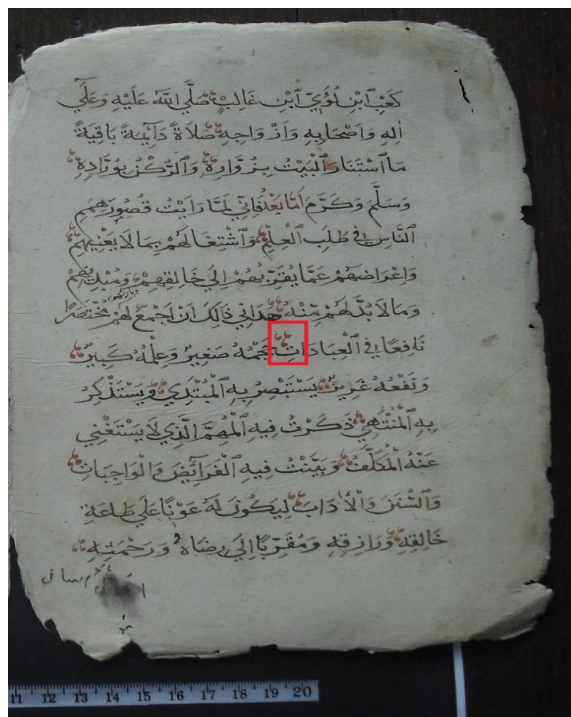 كَعْبِ ٱبْنِ لُؤَيِّ ٱبْنِ غَالِبٍ صَلَّي اللَّهُ عَلَيْهِ وَعَلَي
اٰلِهِ وَاَصْحَابِهِ وَاَزْوَاجِهِ صَلَاةً دَائِمَةً بَاقِيَةً
مَا ٱسْتَنَارَ الْبَيْتُ بِزُوَّارِهِ وَالرُّكْنُ بِوُرَّادِهِ
وَسَلَّمَ وَكَرَّمَ اَمَّا بَعْدُ فَاِنِّي لَمَّا رَاَيْتُ قُصُورَ هِمَمِ
النَّاسِ فِي طَلَبِ الْعِلْمِ وَٱشْتِغَالَهُمْ بِمَا لَا يَعْنِيهِمْ
وَاِعْرَاضَهُمْ عَمَّا يُقَرِّبُهُمْ اِلَي خَالِقِهِمْ
وَمَا لَا بُدَّ لَهُمْ مِنْهُ هَدَانِي ذَالِكَ اَنْ اَجْمَعَ لَهُمْ مُخْتَصَرًا
نَافِعًا فِي الْعِبَادَاتِ حَجْمُهُ صَغِيرٌ وَعِلْمُهُ كَبِيرٌ
وَنَفْعُهُ غَزِيرٌ يَسْتَبْصِرُ بِهِ الْمُبْتَدِي وَيَسْتَذْكِرُ
بِهِ الْمُنْتَهِي ذَكَرْتُ فِيهِ الْمُهِمَّ الَّذِي لَا يَسْتَغْنِي
عَنْهُ الْمُكَلَّفُ وَبَيَّنْتُ فِيهِ الْفَرَائِضَ وَالْوَاجِبَاتِ
وَالسُّنَنَ وَالْاٰدَابَ لِيَكُونَ لَهُ عَوْنًا عَلَي طَاعَةِ
خَالِقِهِ وَرَازِقِهِ وَمُقَرِّبًا اِلَي رِضَاهُ وَرَحْمَتِهِ
11 12 13 14 15 16 17 18 19 20